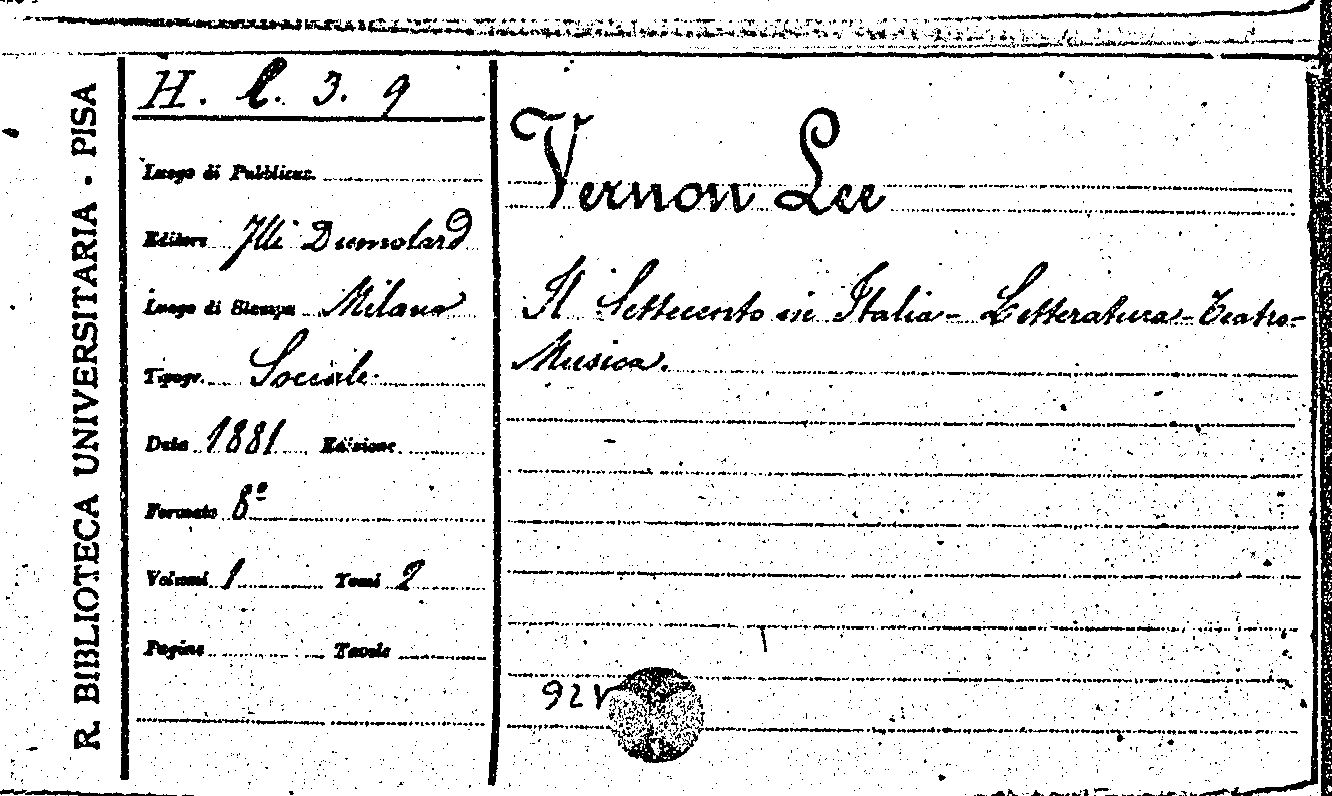 R. BIBLIOTECA UNIVERSITARIA - PISA
H. l. 3. 9
Luogo di Pubblicaz.
Editore Flli Dumolard
Luogo di Stampa Milano
Tipogr. Sociale
Data 1881 Edizione
Formato 8º
Volumi 1 Tomi 2
Pagine Tavole
Vernon Lee
Il Settecento in Italia - Letteratura - Teatro -
Musica.
92V